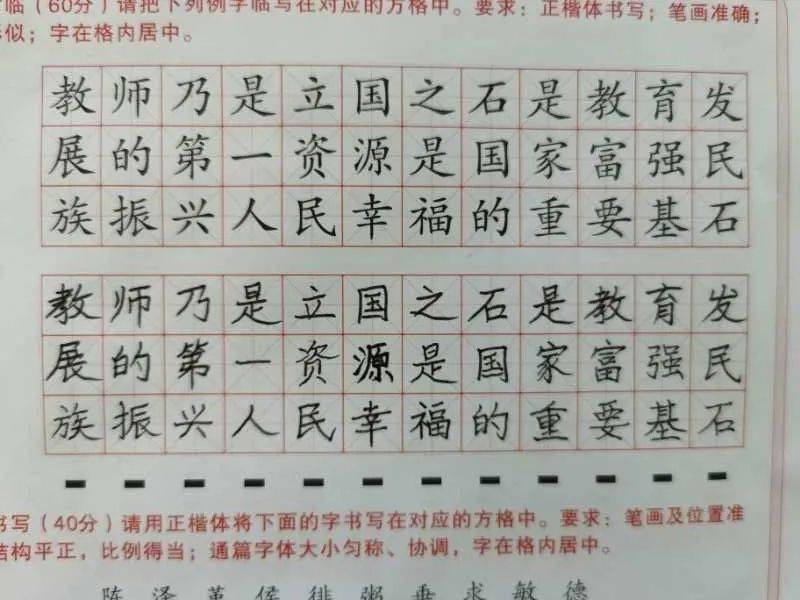 临（60分）请把下列例字临写在对应的方格中。要求：正楷体书写；笔画准确；
似；字在格内居中。
教师乃是立国之石是教育发
展的第一资源是国家富强民
族振兴人民幸福的重要基石
教师乃是立国之石是教育发
展的第一资源是国家富强民
族振兴人民幸福的重要基石
书写（40分）请用正楷体将下面的字书写在对应的方格中。要求：笔画及位置准
结构平正，比例得当；通篇字体大小匀称、协调，字在格内居中。
陈泽革侯徘粥垂求敏德